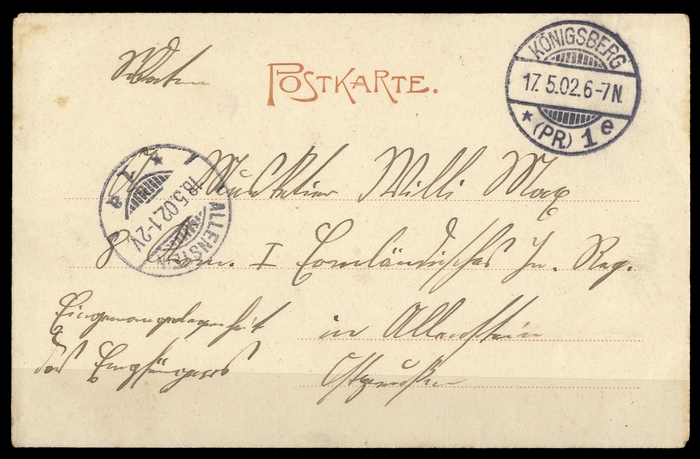 Soldaten
POSTKARTE.
KÖNIGSBERG
17.5.02.6-7N.
* (PR) 1e
ALLENSTEIN
18.5.02.1-2V.
* 1a
Musketier Willi Max
8 Com. I Ermländisches In. Reg.
in Allenstein
Ostpreußen
Eigenangelegenheit
des Empfängers